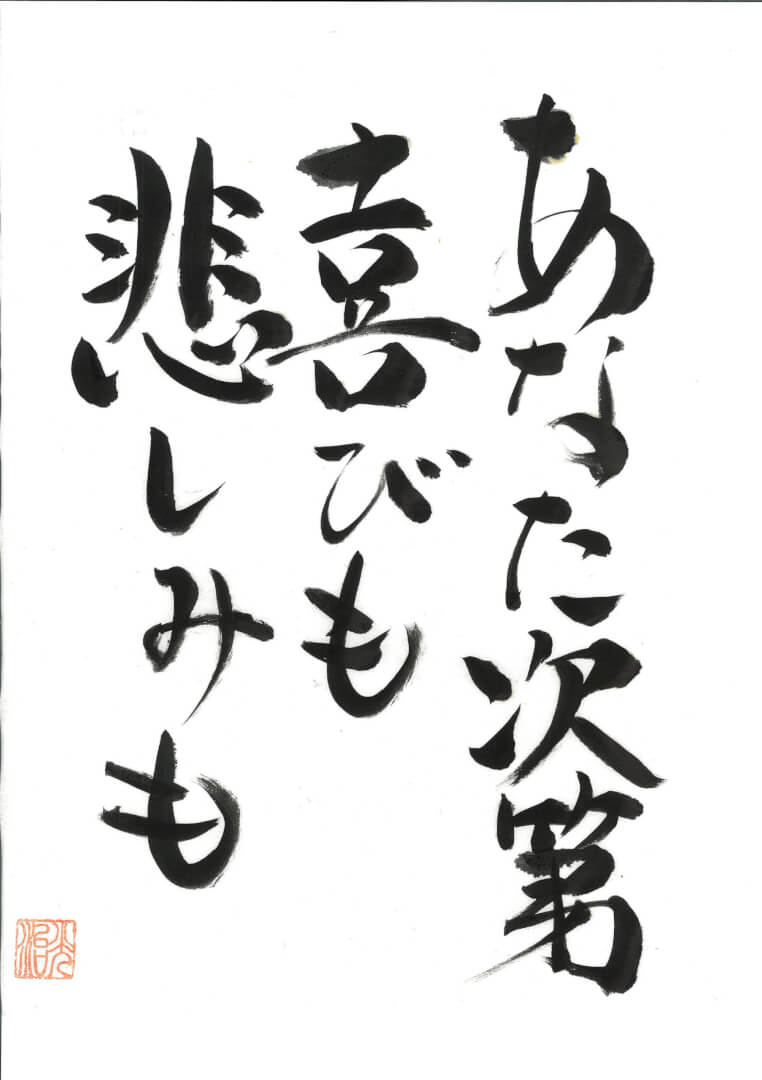 あなた次第
喜びも
悲しみも